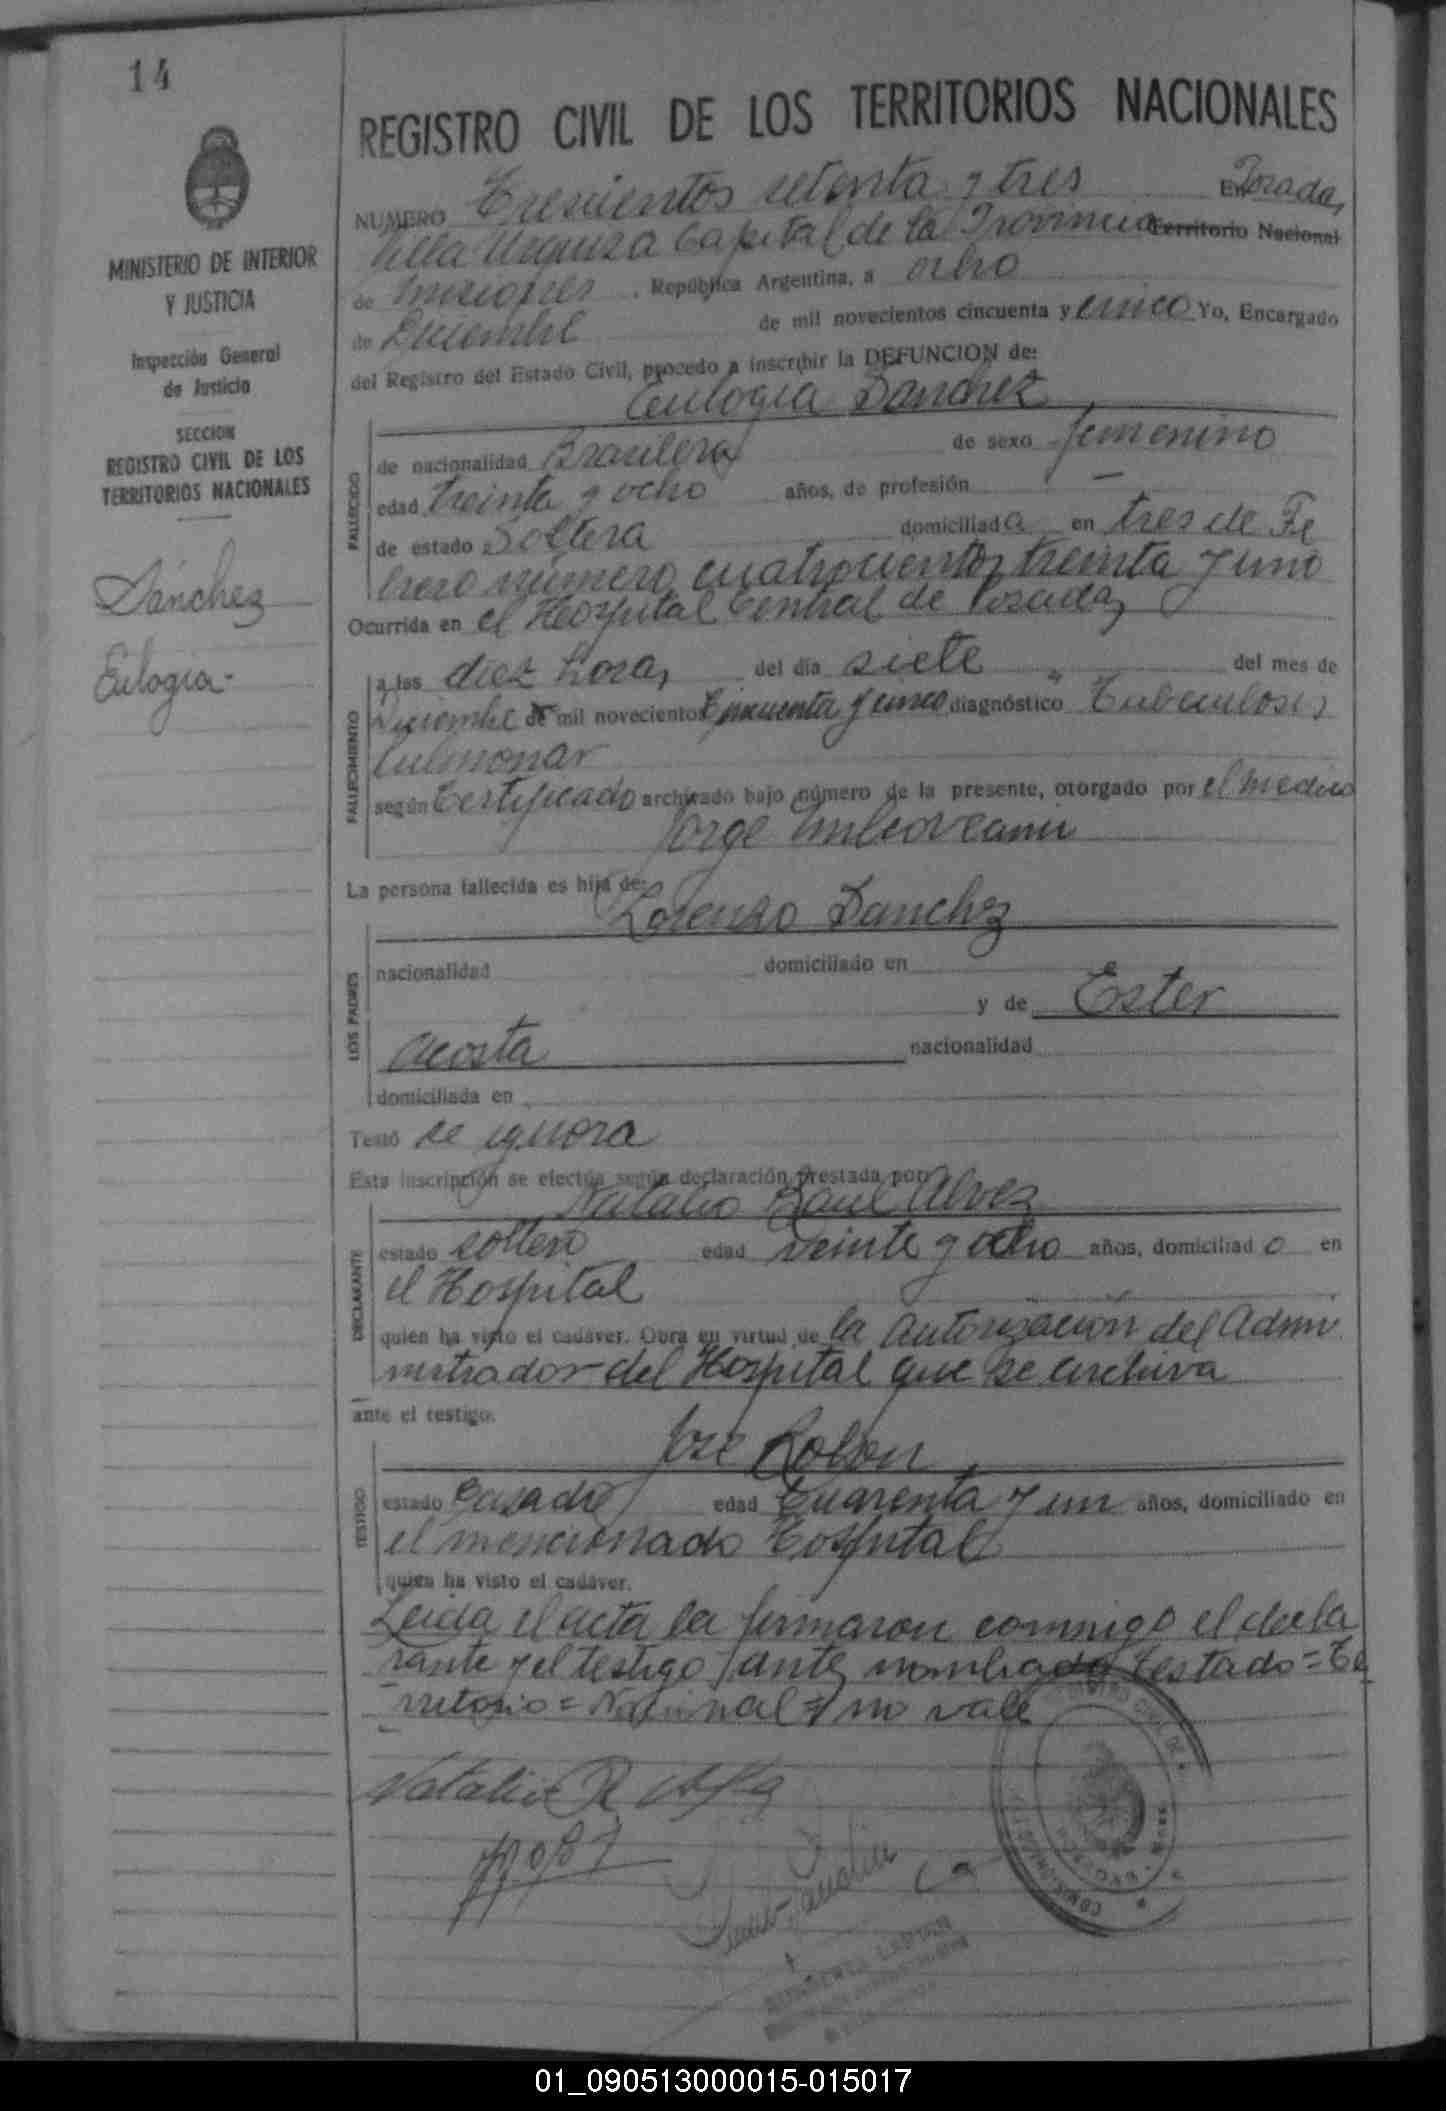 14
REGISTRO CIVIL DE LOS TERRITORIOS NACIONALES
MINISTERIO DE INTERIOR
Y JUSTICIA
Inspección General
de Justicia
SECCION
REGISTRO CIVIL DE LOS
TERRITORIOS NACIONALES
Sánchez
Eulogia
NUMERO Trescientos setenta y tres En Posadas
Villa Urquiza Capital de la Provincia Territorio Nacional
de Misiones, República Argentina, a ocho
de Diciembre de mil novecientos cincuenta y cinco Yo, Encargado
del Registro del Estado Civil, procedo a inscribir la DEFUNCION de:
Eulogia Sanchez
FALLECIDO
de nacionalidad Brasilera de sexo femenino
edad treinta y ocho años, de profesión —
de estado Soltera domiciliada en tres de Fe
brero número cuatrocientos treinta y uno
Ocurrida en el Hospital Central de Posadas
FALLECIMIENTO
a las diez horas del día siete del mes de
Diciembre de mil novecientos Cincuenta y cinco diagnóstico Tuberculosis
Pulmonar
según Certificado archivado bajo número de la presente, otorgado por el medico
Jorge
La persona fallecida es hija de:
Lorenzo Sanchez
LOS PADRES
nacionalidad domiciliado en
y de Ester
Acosta nacionalidad
domiciliada en
Testó se ignora
Esta inscripción se efectúa según declaración prestada por
Natalio Raul Alvez
DECLARANTE
estado soltero edad veinte y ocho años, domiciliado en
el Hospital
quien ha visto el cadáver. Obra en virtud de la autorización del Admi
nistrador del Hospital que se archiva
ante el testigo.
José Lobon
TESTIGO
estado Casado edad Cuarenta y un años, domiciliado en
el mencionado Hospital
quien ha visto el cadáver.
Leida el acta la firmaron conmigo el decla
rante y el testigo antes nombrado testado = Te
rritorio = Nacional = no vale
Natalio R.
01_090513000015-015017